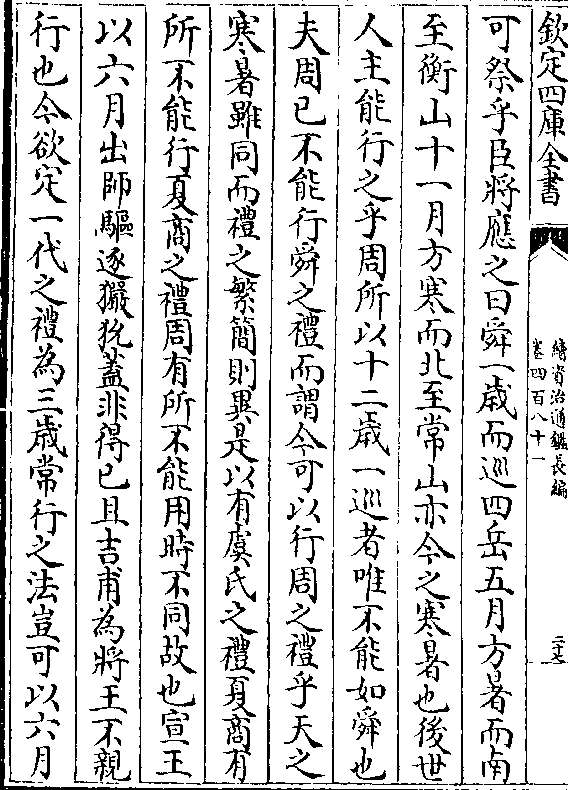 欽定四庫全書
續資治通鑑長編
卷四百八十一
可祭乎臣將應之曰舜一歲而廵四岳五月方暑而南
至衡山十一月方寒而北至常山亦今之寒暑也後世
人主能行之乎周所以十二歲一廵者唯不能如舜也
夫周已不能行舜之禮而謂今可以行周之禮乎天之
寒暑雖同而禮之繁簡則異是以有虞氏之禮夏商有
所不能行夏商之禮周有所不能用時不同故也宣王
以六月出師驅逐玁狁蓋非得已且吉甫為將王不親
行也今欲定一代之禮為三歲常行之法豈可以六月